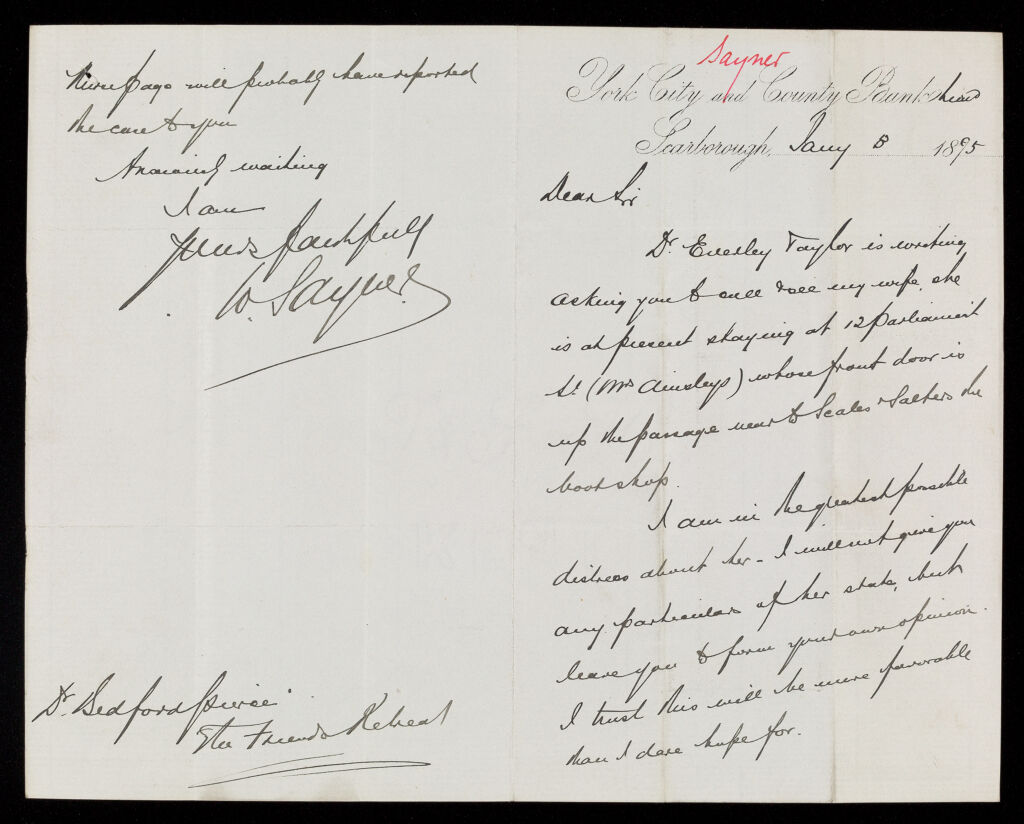 Sayner
York City and County Bank Limd
Scarborough, Jany 8 1895
Dear Sir
Dr. Everley Taylor is writing
asking you to call & see my wife, she
is at present staying at 12 Parliament
St. (Mrs Ainsleys) whose front door is
up the passage next to Scales & Salters the
boot shop.
I am in the greatest possible
distress about her - I will not give you
any particulars of her state, but
leave you to form your own opinion.
I trust this will be more favorable
than I dare hope for.
Nurse Page will probably have reported
the case to you
Anxiously waiting
I am
yours faithfully
W. Sayner.
Dr. Bedford Pierce
The Friends Retreat